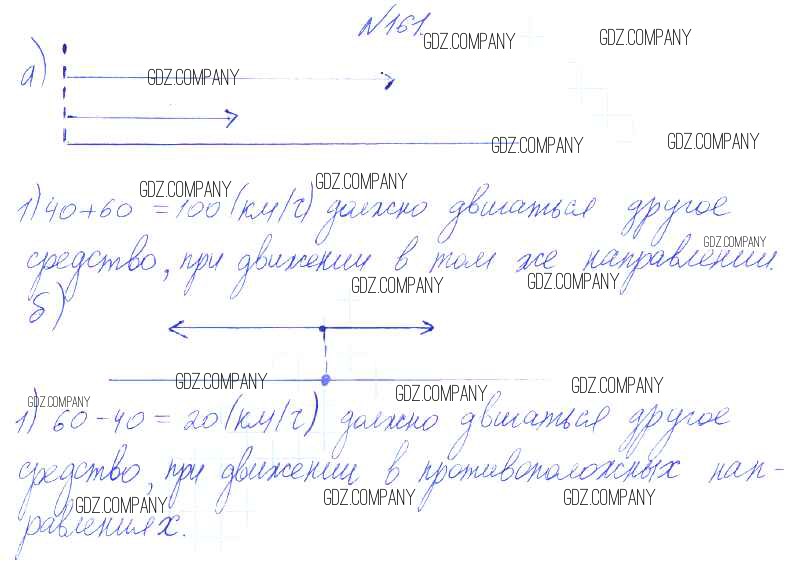 №161.
GDZ.COMPANY GDZ.COMPANY
а) GDZ.COMPANY
GDZ.COMPANY GDZ.COMPANY
GDZ.COMPANY GDZ.COMPANY
1) 40+60 = 100 (км/ч) должно двигаться другое
GDZ.COMPANY
средство, при движении в том же направлении.
GDZ.COMPANY GDZ.COMPANY
б)
GDZ.COMPANY GDZ.COMPANY GDZ.COMPANY
GDZ.COMPANY
1) 60 - 40 = 20 (км/ч) должно двигаться другое
средство, при движении в противоположных нап-
GDZ.COMPANY GDZ.COMPANY GDZ.COMPANY
равлениях.